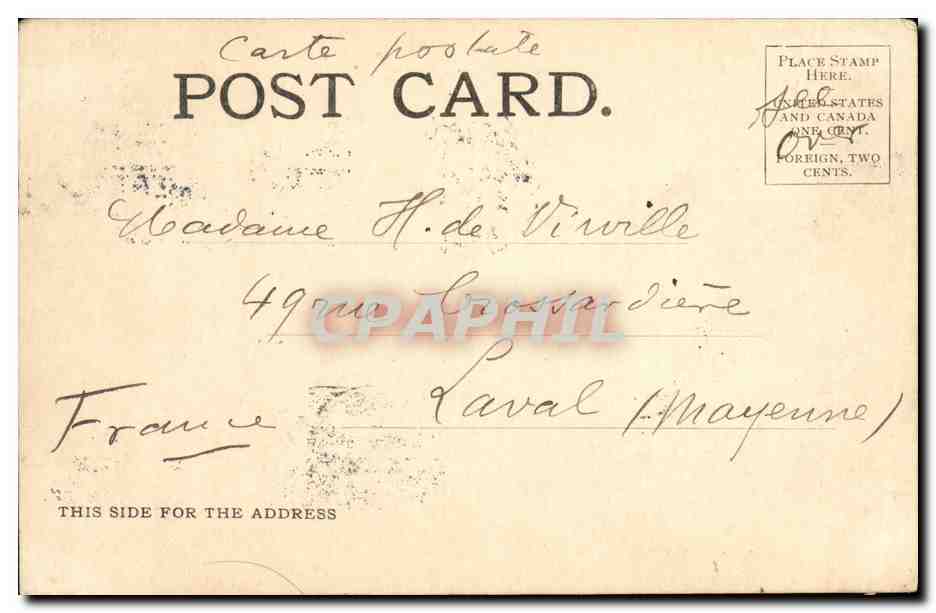 Carte postale
POST CARD.
PLACE STAMP
HERE.
UNITED STATES
AND CANADA
ONE CENT.
FOREIGN, TWO
CENTS.
see
over
Madame H. de Virville
49 rue Crossardière
CPAPHIL
Laval (Mayenne)
France
THIS SIDE FOR THE ADDRESS